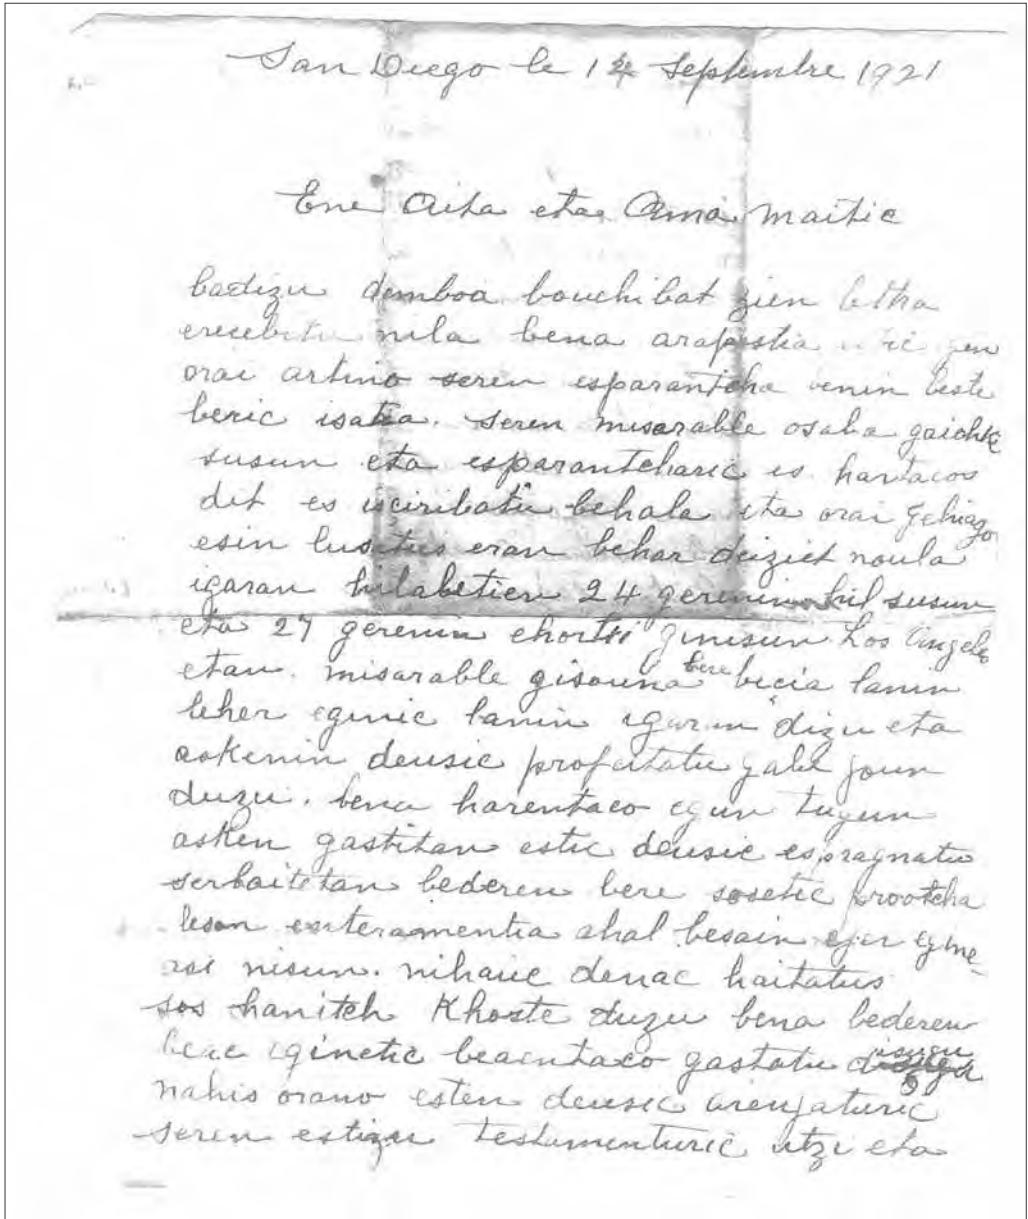 San Diego le 14 Septembre 1921
Ene Aita eta Ama maitic
badizu demboa bouchibat zien letha
erecebitu nila bena arapostia
orai artino seren esparantcha venin beste
beric isatia. seren misarable osaba gaichke
susun eta esparantcharic es hartacos
dit es isciribatu behala eta orai gehiago
esin lusatus eran behar deiziet noula
igaran hilabetien 24 gerenin hil susun
eta 27 gerenin ehortsi ginisun Los Angeles
etan. misarable gisouna bere bicia lanin
leher eginic lanin igaran dizu eta
askenin deusic profeitatu gabe joun
duzu. bena harentaco egun tugun
asken gastitan estic deusic espragnatu
serbaitetan bederen bere sosetic prootcha
leson enteramentia ahal besain ejer egine
rasi nisun. nihauc denac haitatus
sos hanitch Khoste duzu bena bederen
bere eginetic beaentaco gastatu disugu
nahis orano esten deusic arenjaturic
seren estizu testamenturic utzi eta